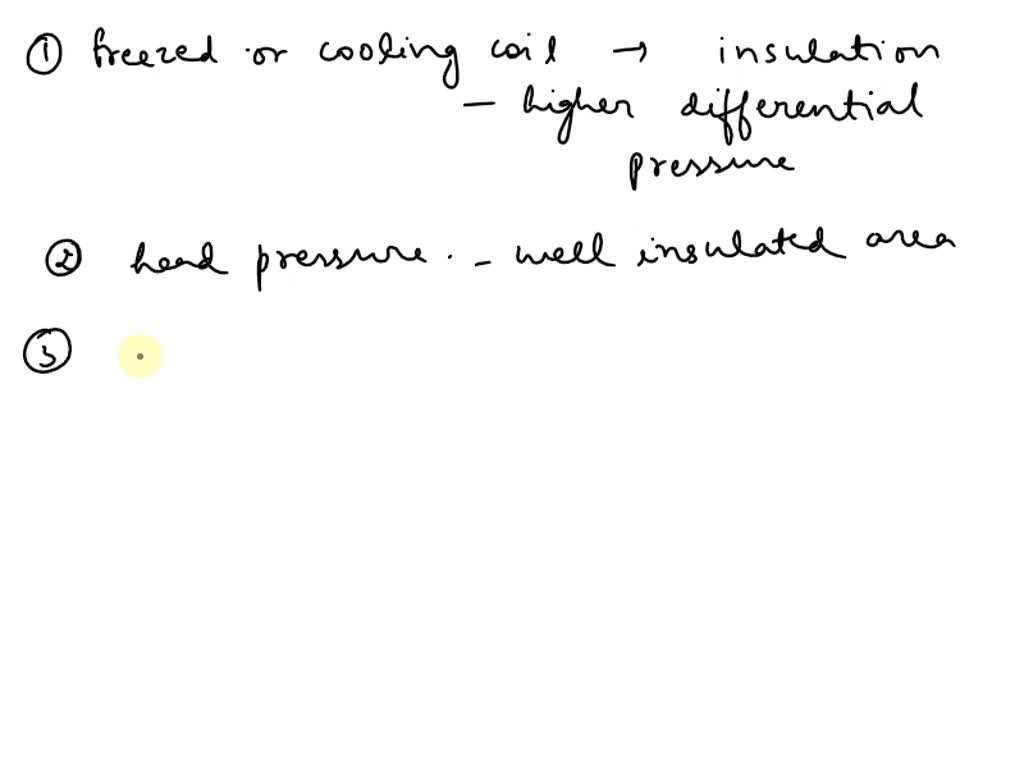 ① freezed or cooling coil → insulation
- higher differential
pressure
② head pressure. - well insulated area
③